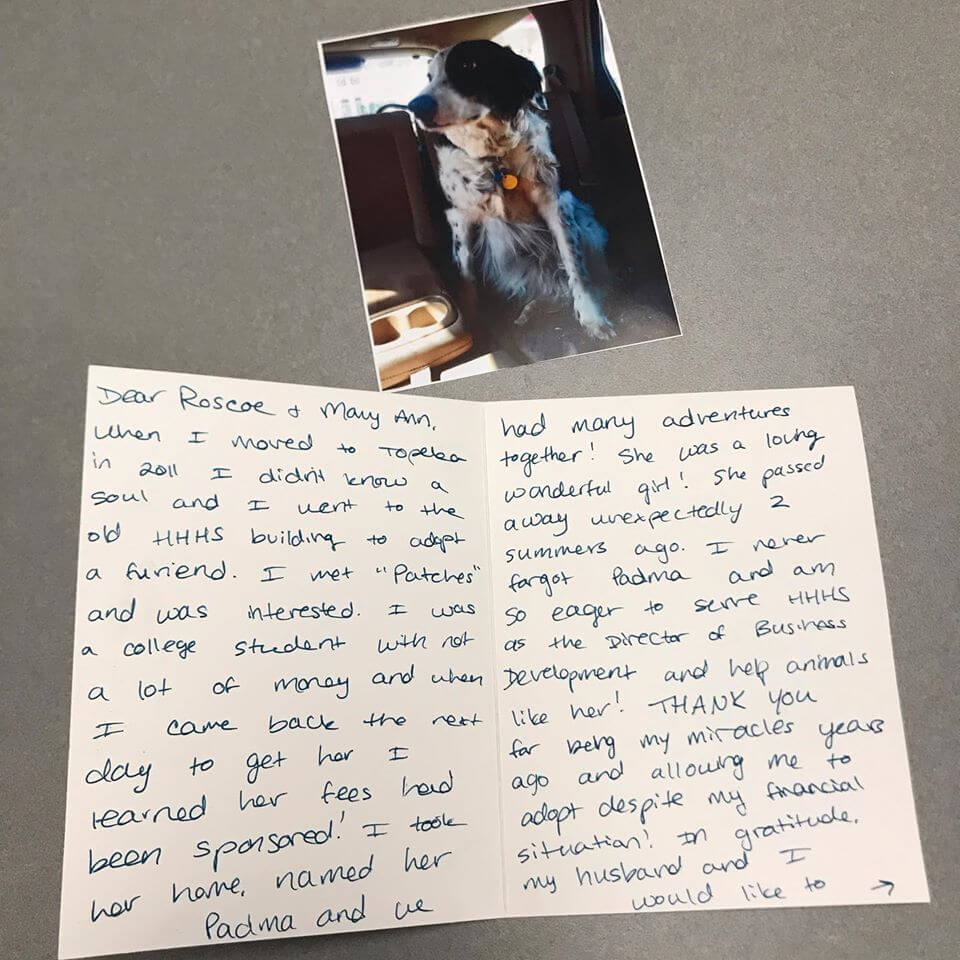 Dear Roscoe + Mary Ann,
When I moved to Topeka
in 2011 I didn't know a
soul and I went to the
old HHHS building to adopt
a furiend. I met "Patches"
and was interested. I was
a college student with not
a lot of money and when
I came back the next
day to get her I
learned her fees had
been sponsored! I took
her home, named her
Padma and we
had many adventures
together! She was a loving
wonderful girl! She passed
away unexpectedly 2
summers ago. I never
forgot Padma and am
so eager to serve HHHS
as the Director of Business
Development and help animals
like her! THANK YOU
for being my miracles years
ago and allowing me to
adopt despite my financial
situation! In gratitude,
my husband and I
would like to →